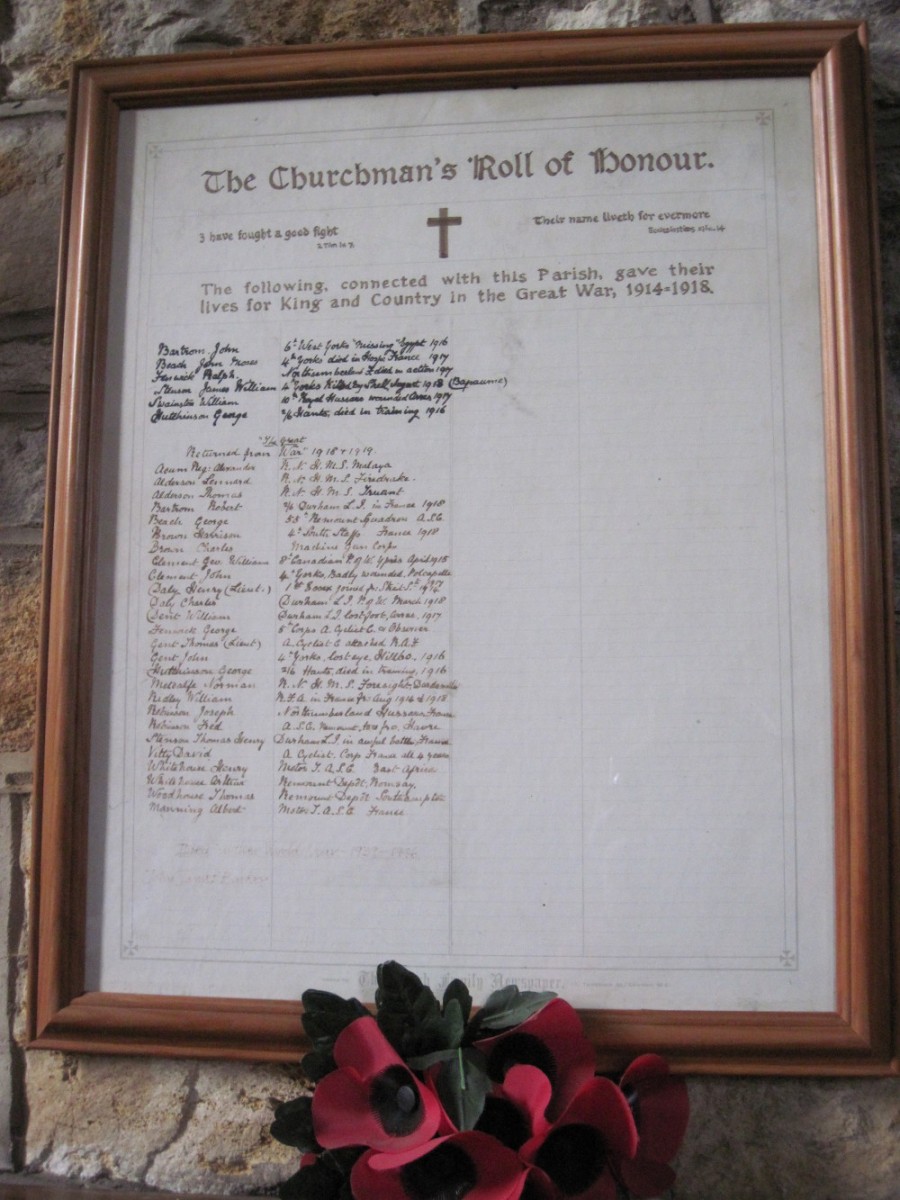 The Churchman's Roll of Honour.
I have fought a good fight
2 Tim iv 7.
Their name liveth for evermore
Ecclesiasticus xliv. 14
The following, connected with this Parish, gave their
lives for King and Country in the Great War, 1914-1918.
Bartrom John 6th West Yorks "missing" Egypt 1916
Beach John Moses 4th Yorks died in Hosp: France 1917
Fenwick Ralph. Northumberland F. died in action 1917
Stenson James William 4th Yorks Killed by Shell August 1918 (Bapaume)
Swainston William 10th Royal Hussars wounded Arras 1917
Hutchinson George 2/6 Hants, died in training 1916
"The Great
Returned from War" 1918 & 1919.
Acum Reg: Alexander R.N. H.M.S. Malaya
Alderson Lennard R.N. H.M.S. Firedrake.
Alderson Thomas R.N. H.M.S. Truant
Bartrom Robert Durham L.I. in France 1918
Beach George 55th Remount Squadron A.S.C.
Brown Harrison 4th South Staffs France 1918
Brown Charles Machine Gun Corps
Clement Geo. William 8th Canadian P. of W. Ypres April 1915
Clement John 4th Yorks, Badly wounded,
Daly Henry (Lieut.) 1st Essex joined fr:
Daly Charles Durham L.I. P. of W. March 1918
Dent William Durham L.I. lost foot, Arras, 1917
Fenwick George 8th Corps A. Cyclist C. & Observer
Gent Thomas (Lieut) A. Cyclist C attached R.A.F
Gent John 4th Yorks, lost eye, Hill 60, 1916
Hutchinson George 2/6 Hants, died in training, 1916
Metcalfe Norman R.N. H.M.S. Foresight, Dardanelles
Ridley William R.F.A. in France fr: Aug 1914 to 1918
Robinson Joseph Northumberland Hussars France
Robinson Fred A.S.C. Remount, to & fro. Havre
Stenson Thomas Henry Durham L.I. in awful battles France
Vitty David A Cyclist. Corp France all 4 years
Whitehouse Henry Motor T. A.S.C. East Africa
Whitehouse Arthur Remount Depôt, Romsey.
Woodhouse Thomas Remount Depôt Southampton
Manning Albert Motor T. A.S.C. France
Family Newspaper.